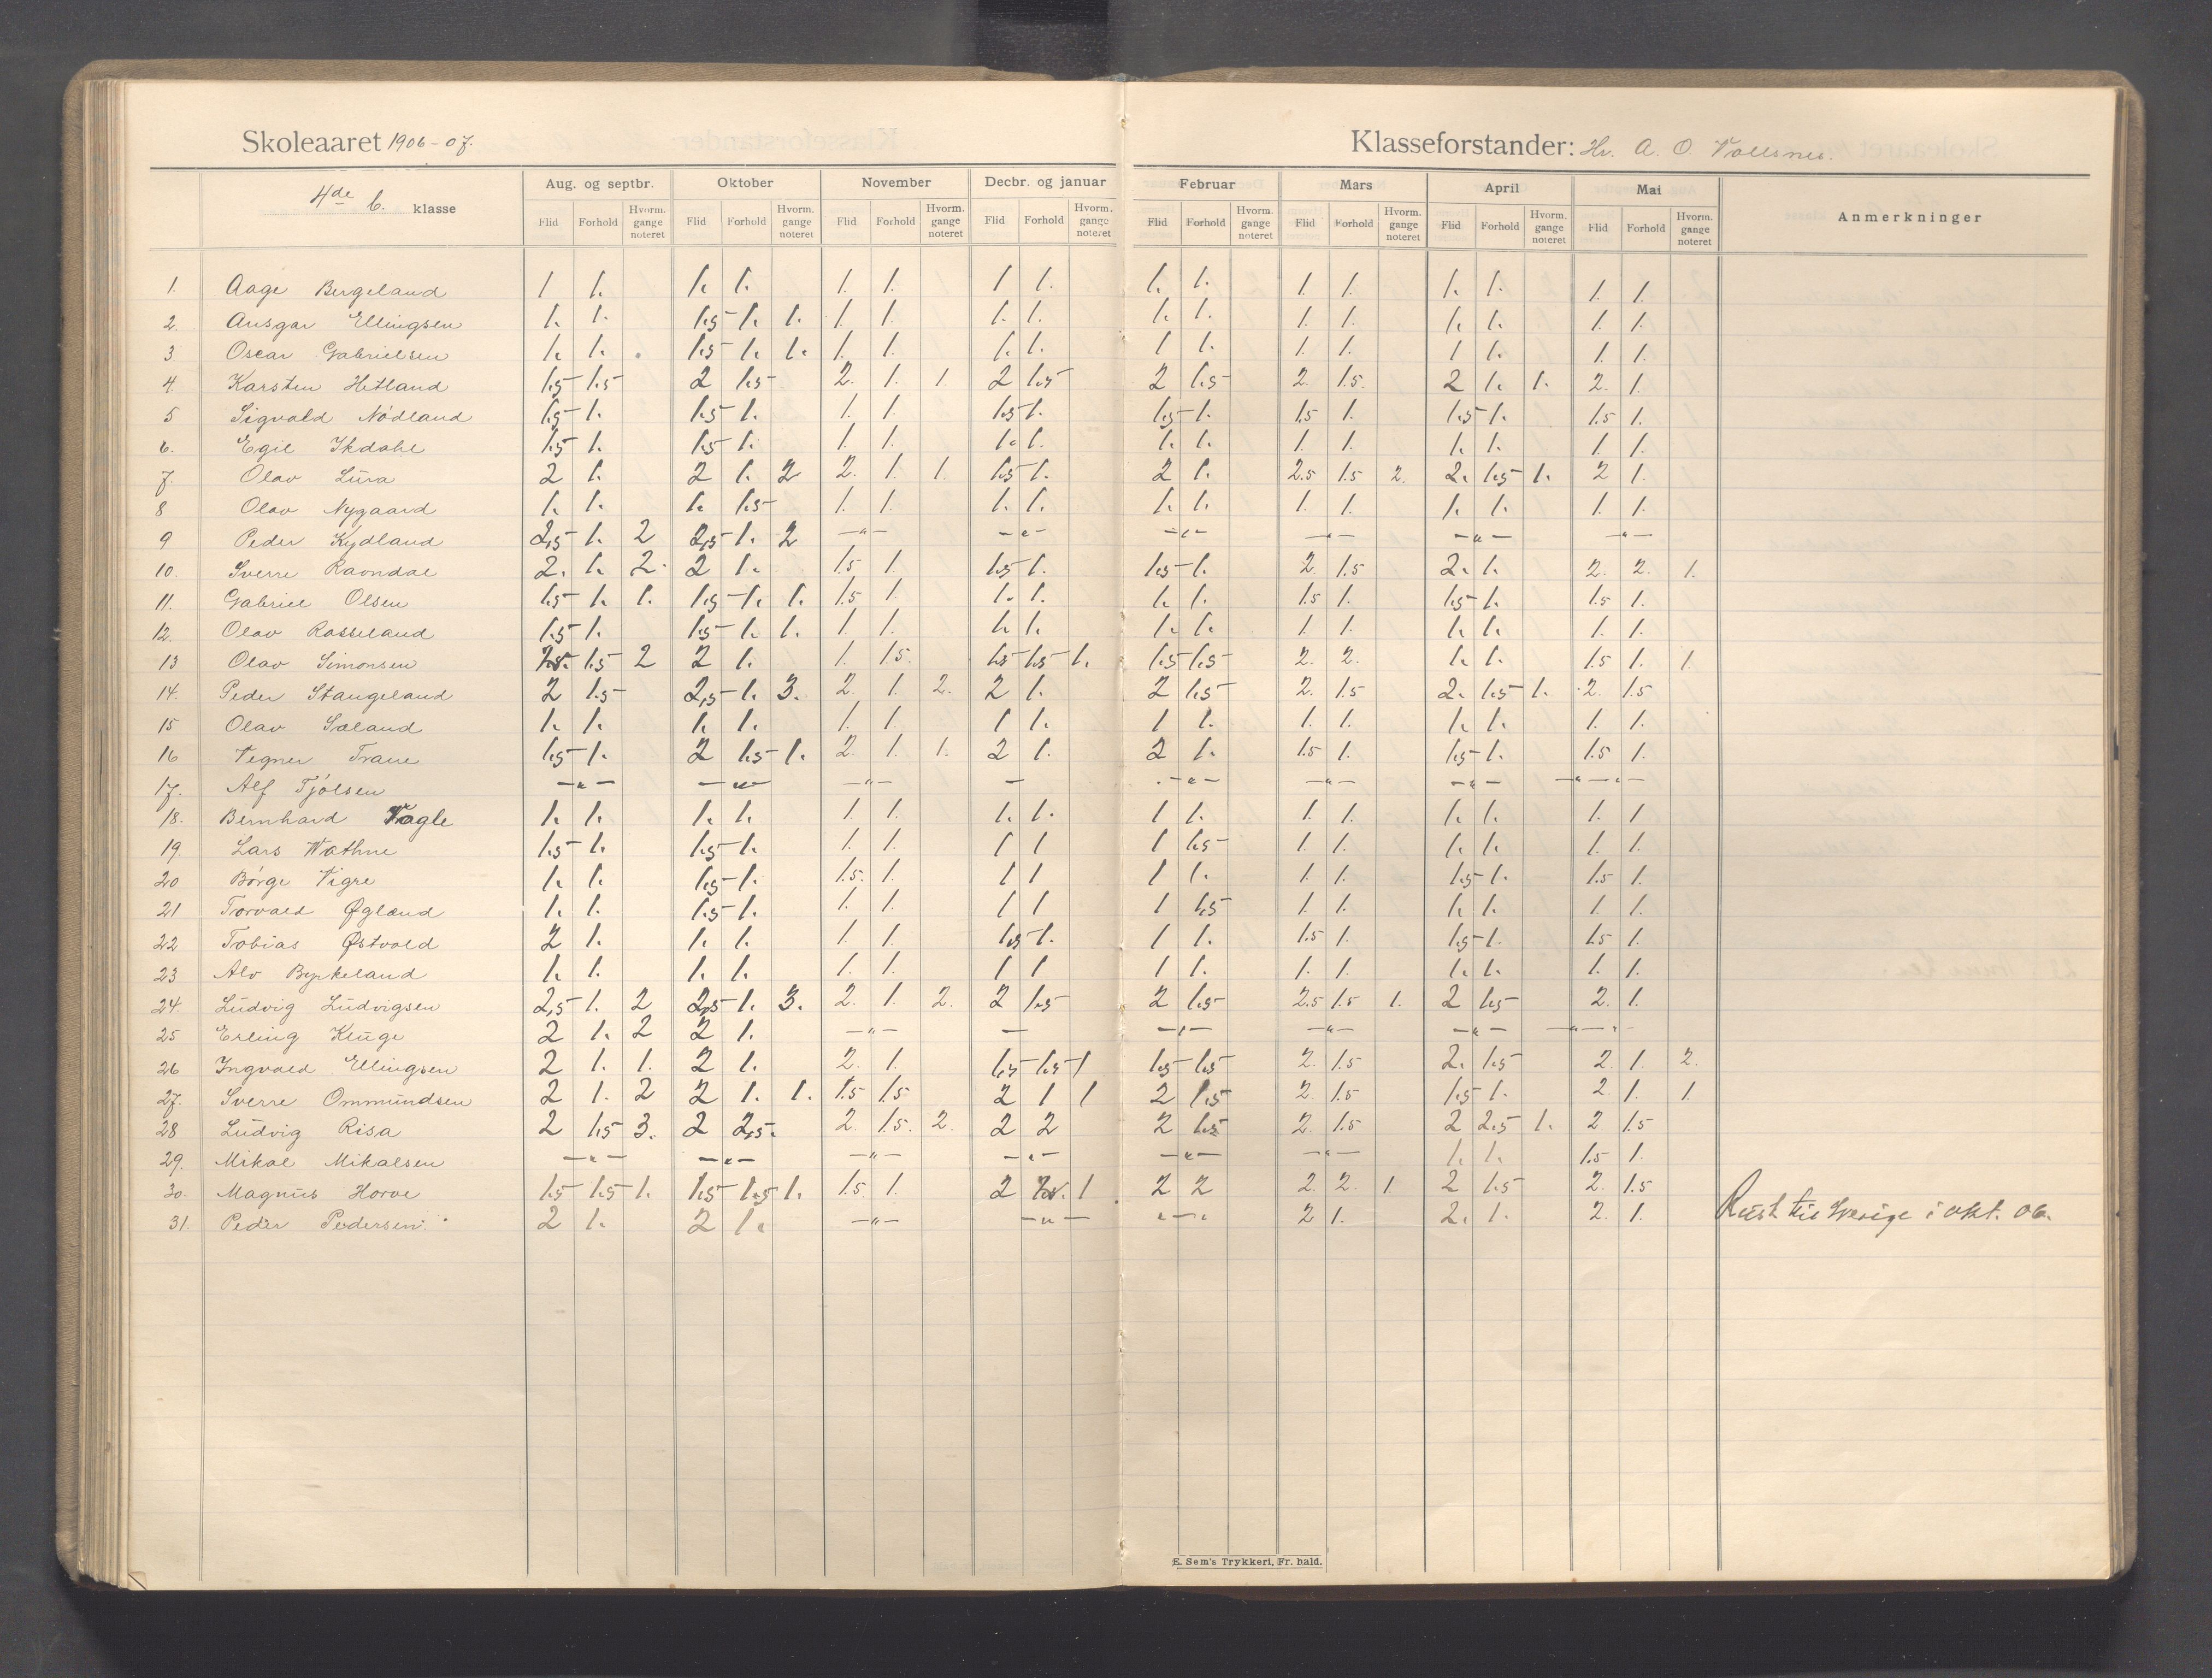 Skoleaaret 1906-07. Klasseforstander: Hr. A. O. Vollsnes.
4de b. klasse Aug. og septbr. Oktober November Decbr. og januar Februar Mars April Mai Anmerkninger
Flid Forhold Hvorm. gange noteret Flid Forhold Hvorm. gange noteret Flid Forhold Hvorm. gange noteret Flid Forhold Hvorm. gange noteret Flid Forhold Hvorm. gange noteret Flid Forhold Hvorm. gange noteret Flid Forhold Hvorm. gange noteret Flid Forhold Hvorm. gange noteret
1. Aage Bergeland 1 1. 1. 1. 1. 1. 1 1. 1. 1. 1. 1. 1. 1. 1. 1.
2. Ansgar Ellingsen 1. 1. 1.5 1. 1. 1. 1. 1. 1. 1. 1. 1. 1. 1. 1. 1. 1.
3 Oscar Gabrielsen 1. 1. 1.5 1. 1. 1. 1. 1. 1. 1 1. 1. 1. 1 1. 1. 1.
4. Karsten Hetland 1.5 1.5 2 1.5 2. 1. 1. 2 1.5 2 1.5 2. 1.5. 2 1. 1. 2. 1.
5 Sigvald Nødland 1.5 1. 1.5 1. 1. 1. 1.5 1. 1.5 1. 1.5 1. 1.5 1. 1.5 1.
6. Egil Skdahl 1.5 1. 1.5 1. 1. 1. 1. 1. 1. 1. 1. 1. 1. 1. 1. 1.
7. Olav Lura 2 1. 2 1. 2 2. 1. 1. 1.5 1. 2 1. 2.5 1.5 2. 2. 1.5 1. 2 1.
8 Olav Nygaard 1. 1. 1. 1.5 1. 1. 1. 1. 1. 1. 1. 1. 1. 1. 1. 1.
9 Peder Kydland 2,5 1. 2 2,5 1. 2 —"— —"— —"— —"— —"— —"—
10. Sverre Ravndal 2. 1. 2. 2 1. 1.5 1. 1.5 1. 1.5 1. 2. 1.5 2. 1. 2. 2. 1.
11. Gabriel Olsen 1.5 1. 1. 1.5 1. 1. 1.5 1. 1. 1. 1. 1. 1.5 1. 1.5 1. 1.5 1.
12. Olav Rosseland 1.5 1. 1.5 1. 1. 1. 1. 1. 1. 1. 1. 1. 1. 1. 1. 1. 1.
13 Olav Simonsen 1.5 2 2 1. 1. 1.5. 1.5 1.5 1. 1.5 1.5 2. 2. 1. 1. 1.5 1. 1.
14. Peder Stangeland 2 1.5 2,5 1. 3. 2. 1. 2. 2 1. 2 1.5 2. 1.5 2. 1.5 1. 2. 1.5
15 Olav Sæland 1. 1. 1. 1. 1. 1. 1 1. 1 1. 1. 1. 1. 1. 1. 1.
16 Vegner Trane 1.5 1. 2 1.5 1. 2. 1. 1. 2 1. 2 1. 1.5 1. 1.5 1. 1.5 1.
17. Alf Tjølsen —"— —"— —"— — —"— —"— —"— —"—
18. Bernhard Vagle 1. 1. 1. 1. 1. 1. 1. 1. 1 1. 1. 1. 1. 1. 1. 1
19. Lars Wathne 1.5 1. 1.5 1. 1. 1. 1 1 1 1.5 1. 1. 1. 1. 1. 1.
20 Børge Vigre 1. 1. 1.5 1. 1.5. 1. 1 1 1 1. 1. 1. 1.5 1. 1.5 1.
21 Torvald Øglænd 1. 1. 1.5 1. 1. 1. 1 1 1 1.5 1. 1. 1. 1. 1. 1.
22 Tobias Østvold 2 1. 1. 1. 1. 1. 1.5 1. 1 1. 1.5 1. 1.5 1. 1.5 1.
23 Alv Byrkeland 1. 1. 1. 1. 1. 1. 1 1 1 1. 1. 1. 1. 1. 1. 1.
24. Ludvig Ludvigsen 2,5 1. 2 2,5 1. 3. 2. 1. 2. 2 1.5 2 1.5 2.5 1.5 1. 2 1.5 2. 1.
25 Erling Kluge 2 1. 2 2 1. —"— — —"— —"— —"— —"—
26 Ingvald Ellingsen 2 1. 1. 2 1. 2. 1. 1.5 1.5 1 1.5 1.5 2. 1.5 2. 1.5 2. 1. 2.
27. Sverre Ommundsen 2 1. 2 2 1. 1. 1.5 1.5. 2 1 1 2 1.5 2. 1.5 1.5 1. 2. 1. 1.
28 Ludvig Risa 2 1.5 3. 2 2,5. 2. 1.5. 2. 2 2 2 1.5 2. 1.5 2 2.5 1. 2 1.5
29. Mikal Mikalsen —"— —"— —"— —"— —"— —"— 1. 1. 1.5 1.
30. Magnus Horve 1.5 1.5 1. 1.5 1.5 1. 1.5. 1. 2 1 2 2 2. 2. 1. 2 1.5 2. 1.5
31. Peder Pedersen 2 1. 2 1. —"— —"— "—" 2 1. 2. 1. 2. 1. Reist til Sverige i okt. 06.
E. Sem's Trykkeri, Fr. hald.